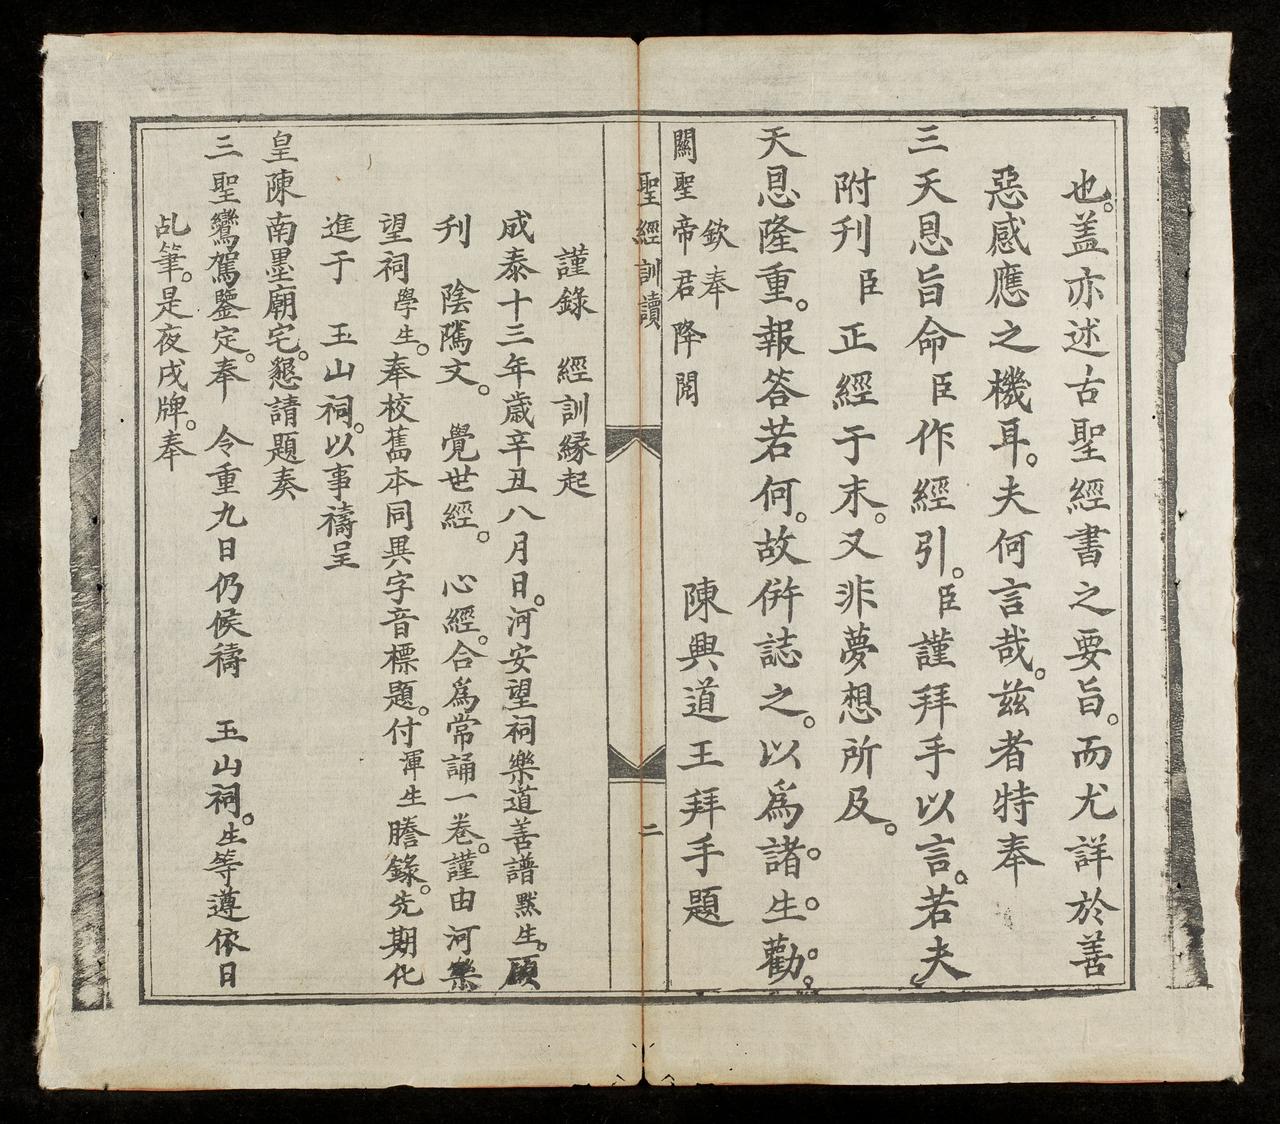 也。蓋亦述古聖經書之要旨。而尤詳於善
惡感應之機耳。夫何言哉。茲者特奉
三天恩旨命臣作經引。臣謹拜手以言。若夫
附刋臣正經于末。又非夢想所及。
天恩隆重。報答若何。故併誌之。以爲諸生勸。
欽奉
關聖帝君降閲
陳興道王拜手題
聖經訓讀
二
謹錄 經訓縁起
成泰十三年歲辛丑八月日。河安望祠樂道善譜默生。願
刋 陰隲文。 覺世經。 心經。合爲常誦一卷。謹由河樂
望祠學生。奉校舊本同異字音標題。付渾生謄錄。先期化
進于 玉山祠。以事禱呈
皇陳南墨廟宅。懇請題奏
三聖鸞駕鑒定。奉 令重九日仍候禱 玉山祠。生等遵依日
乩筆。是夜戌牌。奉